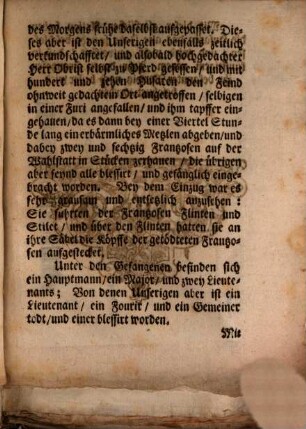 des Morgens frühe daselbst aufgepasset. Die-
ses aber ist den Unserigen ebenfalls zeitlich
verkundschafftet / und alsobald hochgedachter
Herr Obrist selbst zu Pferd gesessen / und mit
hundert und zehen Husaren den Feind
ohnweit gedachtem Ort angetroffen / selbigen
in einer Furi angefallen / und ihm tapffer ein-
gehauen / da es dann bey einer Viertel Stun-
de lang ein erbärmliches Metzlen abgeben / und
dabey zwey und sechtzig Frantzosen auf der
Wahlstatt in Stücken zerhauen / die übrigen
aber seynd alle blessirt / und gefänglich einge-
bracht worden. Bey dem Einzug war es
sehr grausam und entsetzlich anzusehen:
Sie führten der Frantzosen Flinten und
Stilet / und über den Flinten hatten sie an
ihre Säbel die Köpffe der getödteten Frantzo-
sen aufgestecket.
Unter den Gefangenen befinden sich
ein Hauptmann / ein Major / und zwey Lieute-
nants; Von denen Unserigen aber ist ein
Lieutenant / ein Fourir / und ein Gemeiner
todt / und einer blessirt worden.
Mit